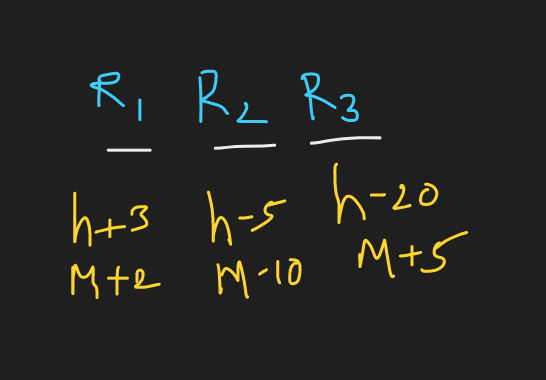 R1 R2 R3
h+3 h-5 h-20
M+2 M-10 M+5